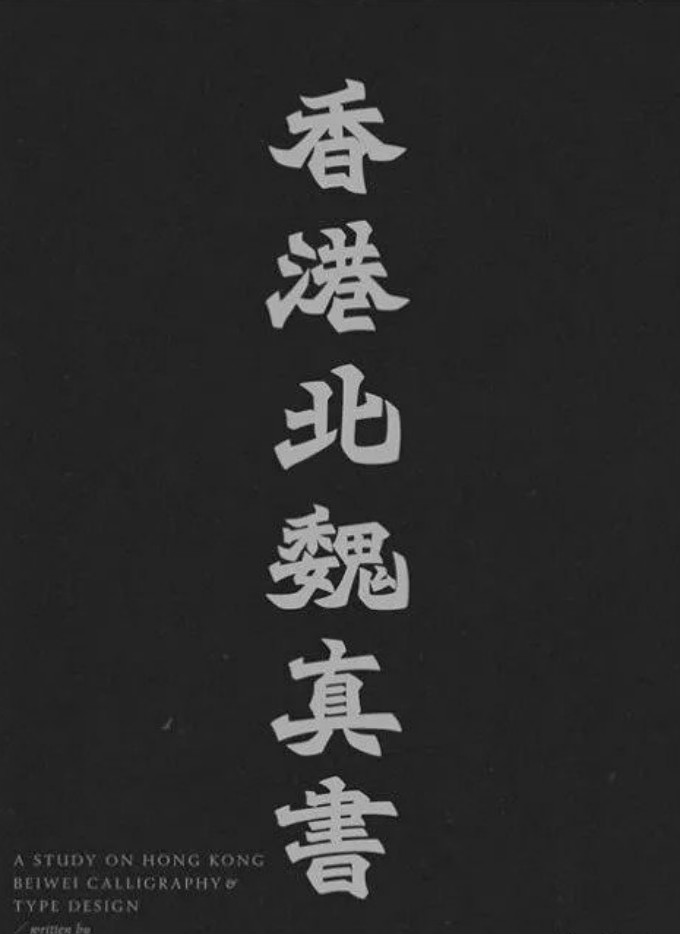 香港北魏真書
A STUDY ON HONG KONG
BEIWEI CALLIGRAPHY &
TYPE DESIGN
/ written by